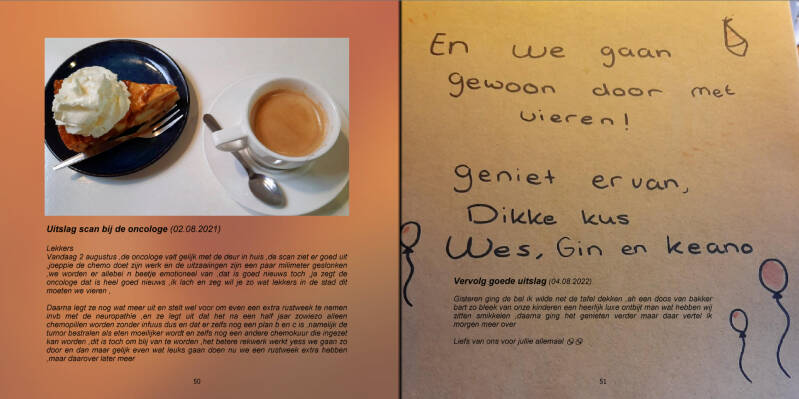 Uitslag scan bij de oncologe (02.08.2021)
Lekkers
Vandaag 2 augustus ,de oncologe valt gelijk met de deur in huis ,de scan ziet er goed uit
,joeppie de chemo doet zijn werk en de uitzaaiingen zijn een paar milimeter geslonken
,we worden er allebei n beetje emotioneel van ,dat is goed nieuws toch ,ja zegt de
oncologe dat is heel goed nieuws ,ik lach en zeg wil je zo wat lekkers in de stad dit
moeten we vieren ,
Daarna legt ze nog wat meer uit en stelt wel voor om even een extra rustweek te nemen
invb met de neuropathie ,en ze legt uit dat het na een half jaar zowiezo alleen
chemopillen worden zonder infuus dus en dat er zelfs nog een plan b en c is ,namelijk de
tumor bestralen als eten moeilijker wordt en zelfs nog een andere chemokuur die ingezet
kan worden ,dit is toch om blij van te worden ,het betere rekwerk werkt yess we gaan zo
door en dan maar gelijk even wat leuks gaan doen nu we een rustweek extra hebben
,maar daarover later meer
50
En we gaan
gewoon door met
vieren!
geniet ervan,
Dikke kus
Wes, Gin en keano
Vervolg goede uitslag (04.08.2022)
Gisteren ging de bel ik wilde net de tafel dekken ,ah een doos van bakker
bart zo bleek van onze kinderen een heerlijk luxe ontbijt man wat hebben wij
zitten smikkelen ,daarna ging het genieten verder maar daar vertel ik
morgen meer over
Liefs van ons voor jullie allemaal
51